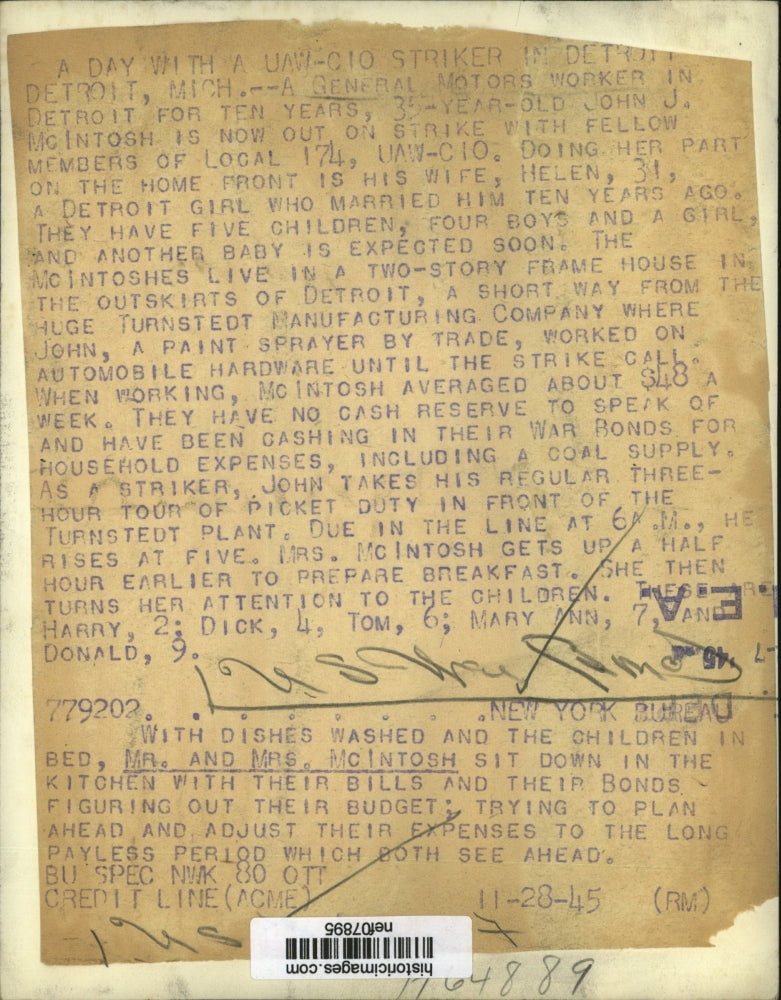 A DAY WITH A UAW-CIO STRIKER IN DETROIT
DETROIT, MICH.--A GENERAL MOTORS WORKER IN
DETROIT FOR TEN YEARS, 35-YEAR-OLD JOHN J.
MCINTOSH IS NOW OUT ON STRIKE WITH FELLOW
MEMBERS OF LOCAL 174, UAW-CIO. DOING HER PART
ON THE HOME FRONT IS HIS WIFE, HELEN, 31,
A DETROIT GIRL WHO MARRIED HIM TEN YEARS AGO.
THEY HAVE FIVE CHILDREN, FOUR BOYS AND A GIRL,
AND ANOTHER BABY IS EXPECTED SOON. THE
MCINTOSHES LIVE IN A TWO-STORY FRAME HOUSE IN
THE OUTSKIRTS OF DETROIT, A SHORT WAY FROM THE
HUGE TURNSTEDT MANUFACTURING COMPANY WHERE
JOHN, A PAINT SPRAYER BY TRADE, WORKED ON
AUTOMOBILE HARDWARE UNTIL THE STRIKE CALL.
WHEN WORKING, MCINTOSH AVERAGED ABOUT $48 A
WEEK. THEY HAVE NO CASH RESERVE TO SPEAK OF
AND HAVE BEEN CASHING IN THEIR WAR BONDS FOR
HOUSEHOLD EXPENSES, INCLUDING A COAL SUPPLY.
AS A STRIKER, JOHN TAKES HIS REGULAR THREE-
HOUR TOUR OF PICKET DUTY IN FRONT OF THE
TURNSTEDT PLANT. DUE IN THE LINE AT 6A.M., HE
RISES AT FIVE. MRS. MCINTOSH GETS UP A HALF
HOUR EARLIER TO PREPARE BREAKFAST. SHE THEN
TURNS HER ATTENTION TO THE CHILDREN. THESE ARE
HARRY, 2; DICK, 4, TOM, 6; MARY ANN, 7, AND
DONALD, 9.
779202. . . . . . . . .NEW YORK BUREAU
WITH DISHES WASHED AND THE CHILDREN IN
BED, MR. AND MRS. MCINTOSH SIT DOWN IN THE
KITCHEN WITH THEIR BILLS AND THEIR BONDS
FIGURING OUT THEIR BUDGET; TRYING TO PLAN
AHEAD AND ADJUST THEIR EXPENSES TO THE LONG
PAYLESS PERIOD WHICH BOTH SEE AHEAD.
BU SPEC NWK 80 OTT
CREDIT LINE (ACME) 11-28-45 (RM)
nef07895
historicimages.com
1164889